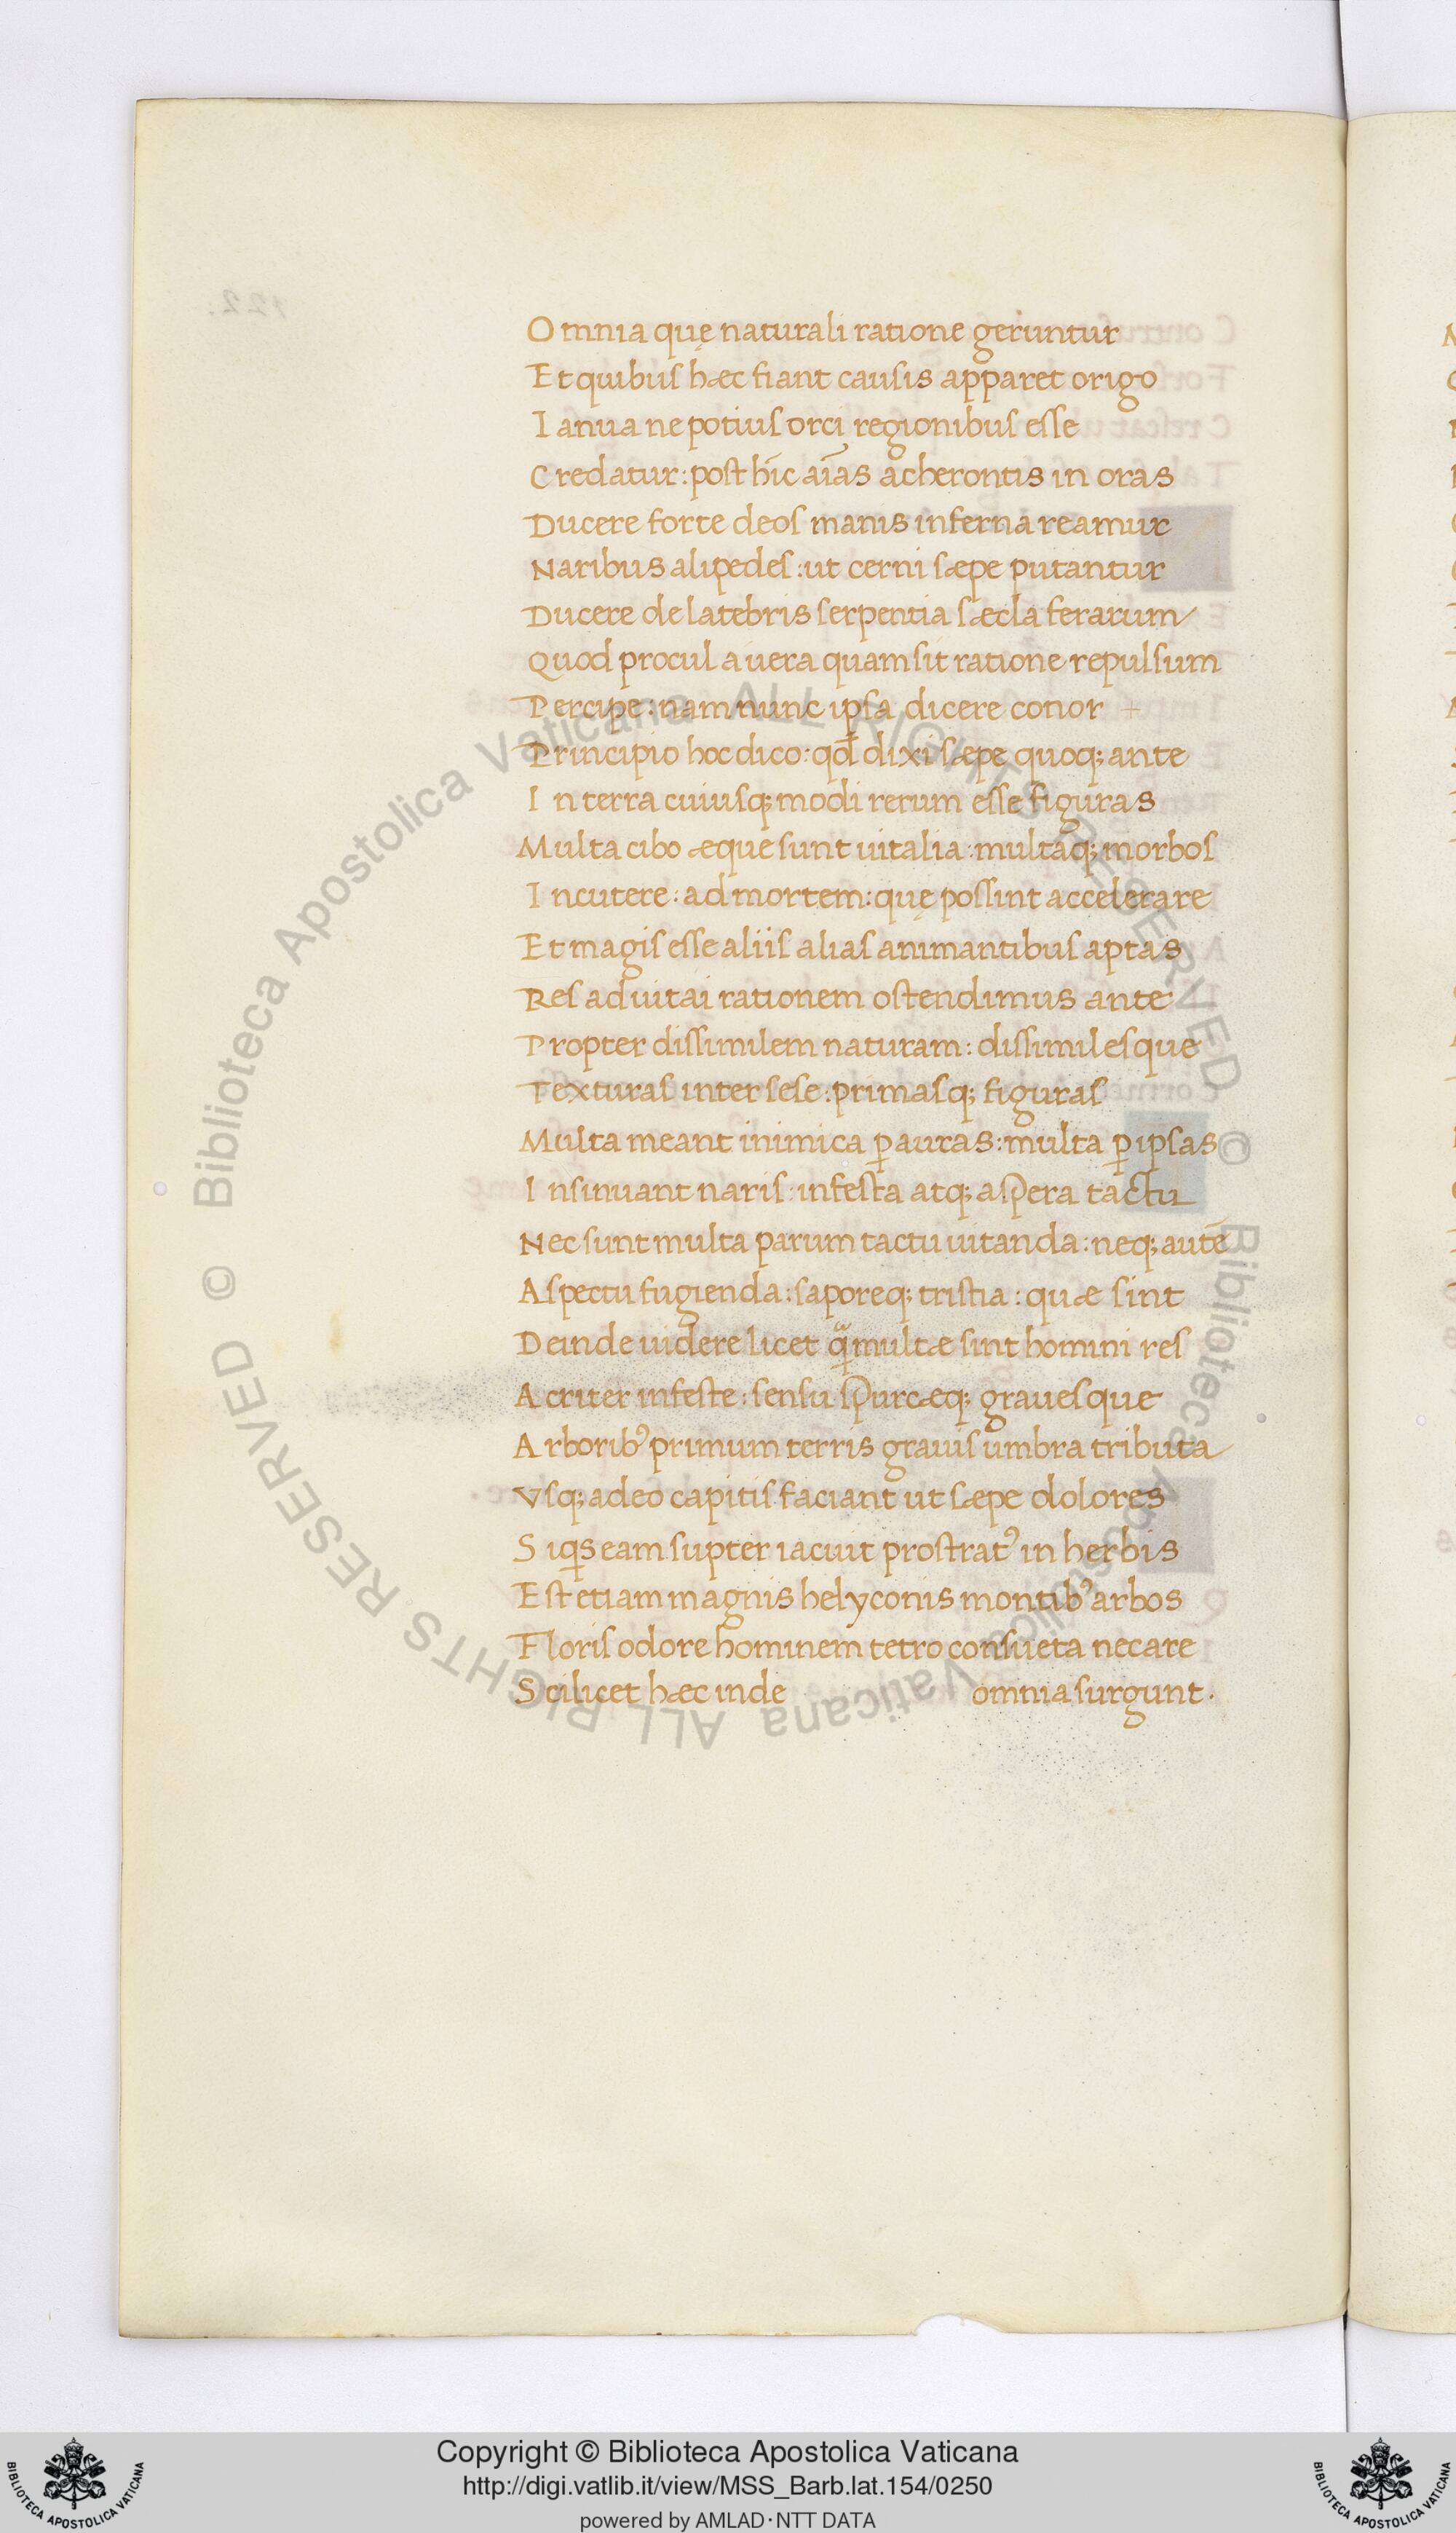 122.
Omnia quę naturali ratione geruntur
Et quibus hæc fiant causis apparet origo
Ianua ne potius orci regionibus esse
Credatur: post hīc aīas acherontis in oras
Ducere forte deos manis inferna reamur
Naribus alipedes: ut cerni sæpe putantur
Ducere de latebris serpentia sæcla ferarum
Quod procul a uera quam sit ratione repulsum
Percipe: nam nunc ipsa dicere conor
Principio hoc dico: qđ dixi sæpe quoq; ante
In terra cuiusq; modi rerum esse figuras
Multa cibo æque sunt uitalia: multaq; morbos
Incutere: ad mortem: quę possint accelerare
Et magis esse aliis alias animantibus aptas
Res ad uitai rationem ostendimus ante
Propter dissimilem naturam: dissimilesque
Texturas inter sese: primasq; figuras
Multa meant inimica ꝑ auras: multa ꝑ ipsas
Insinuant naris: infesta atq; aspera tactu
Nec sunt multa parum tactu uitanda: neq; autē
Aspectu fugienda: saporeq; tristia: quæ sint
Deinde uidere licet qᷓ multæ sint homini res
Acriter infeste: sensu spurcæq; grauesque
Arborib⁹ primum terris grauis umbra tributa
Vsq; adeo capitis faciant ut sæpe dolores
Siqs eam supter iacuit prostrat⁹ in herbis
Est etiam magnis helyconis montib⁹ arbos
Floris odore hominem tetro consueta necare
Scilicet hæc inde omnia surgunt.
© Biblioteca Apostolica Vaticana ALL RIGHTS RESERVED
© Biblioteca Apostolica Vaticana ALL RIGHTS RESERVED
Copyright © Biblioteca Apostolica Vaticana
http://digi.vatlib.it/view/MSS_Barb.lat.154/0250
powered by AMLAD·NTT DATA
BIBLIOTECA APOSTOLICA VATICANA
BIBLIOTECA APOSTOLICA VATICANA